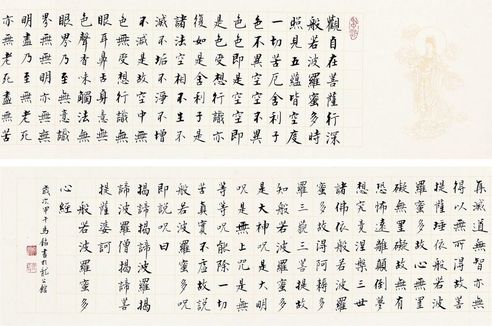 觀自在菩薩行深
般若波羅蜜多時
照見五蘊皆空度
一切苦厄舍利子
色不異空空不異
色色即是空空即
是色受想行識亦
復如是舍利子是
諸法空相不生不
滅不垢不淨不增
不減是故空中無
色無受想行識無
眼耳鼻舌身意無
色聲香味觸法無
眼界乃至無意識
界無無明亦無無
明盡乃至無老死
亦無老死盡無苦
集滅道無智亦無
得以無所得故菩
提薩埵依般若波
羅蜜多故心無罣
礙無罣礙故無有
恐怖遠離顛倒夢
想究竟涅槃三世
諸佛依般若波羅
蜜多故得阿耨多
羅三藐三菩提故
知般若波羅蜜多
是大神呪是大明
呪是無上呪是無
等等呪能除一切
苦真實不虛故說
般若波羅蜜多呪
即說呪曰
揭諦揭諦波羅揭
諦波羅僧揭諦菩
提薩婆訶
般若波羅蜜多
心經
歲次甲午